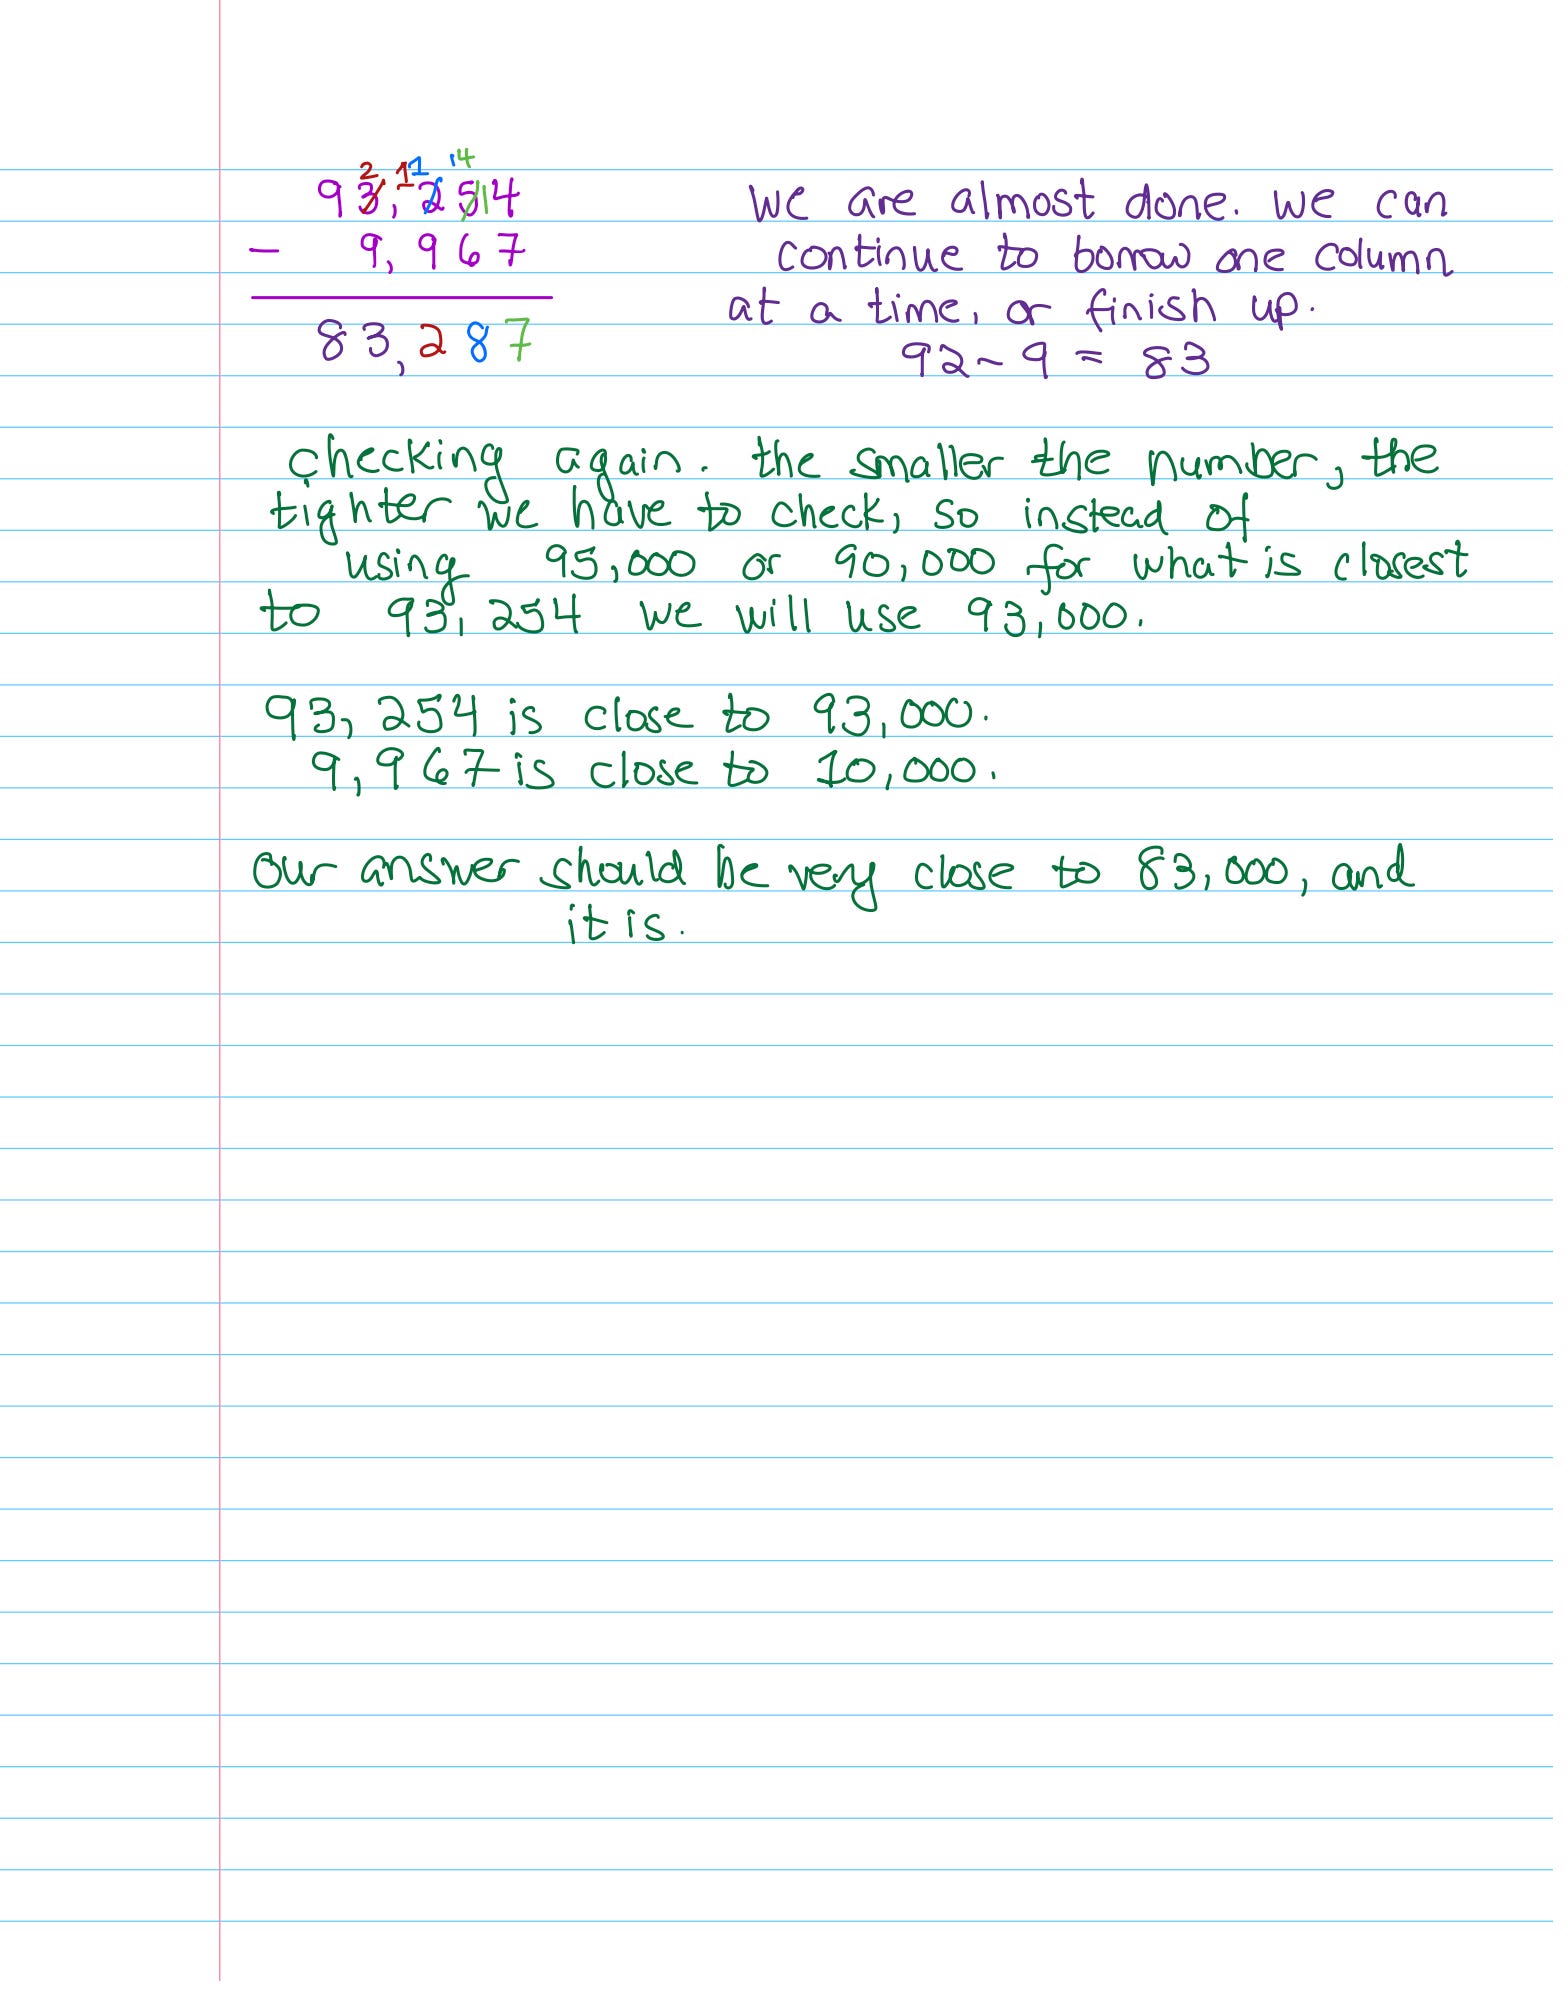 2 11 14
93,2514
- 9,967
83,287
We are almost done. We can
continue to borrow one column
at a time, or finish up.
92 - 9 = 83
Checking again. The smaller the number, the
tighter we have to check, so instead of
using 95,000 or 90,000 for what is closest
to 93,254 we will use 93,000.
93,254 is close to 93,000.
9,967 is close to 10,000.
Our answer should be very close to 83,000, and
it is.